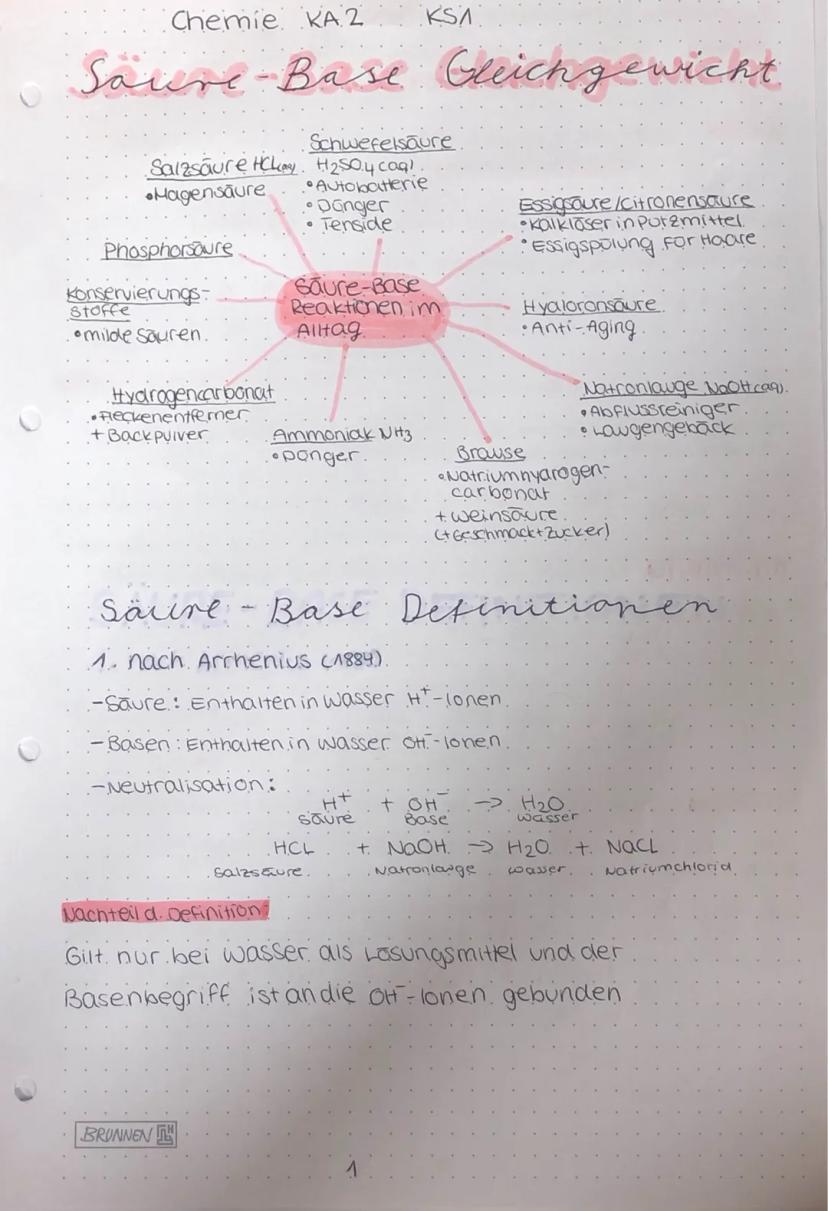 Chemie KA.2 KS1
Säure-Base Gleichgewicht
Schwefelsäure
H₂SO₄(aq)
• Autobatterie
• Dünger
• Tenside
Salzsäure HCl(aq)
• Magensäure
Essigsäure/Citronensäure
• Kalklöser in Putzmittel
• Essigspülung für Haare
Phosphorsäure
Konservierungs-
stoffe
• milde Säuren
Säure-Base
Reaktionen im
Alltag
Hyaloronsäure
• Anti-Aging
Hydrogencarbonat
• Fleckenentferner
+ Backpulver
Ammoniak NH3
• Dünger
Brause
• Natriumhydrogen-
carbonat
+ Weinsäure
(+Geschmack+Zucker)
Natronlauge NaOH(aq)
• Abflussreiniger
• Laugengebäck
Säure - Base Definitionen
1. nach Arrhenius (1884)
- Säure: Enthalten in Wasser H⁺-Ionen
- Basen: Enthalten in Wasser OH⁻-Ionen
- Neutralisation:
H⁺ + OH⁻ → H₂O
Säure Base Wasser
HCL + NaOH → H₂O + NaCL
Salzsäure Natronlauge Wasser Natriumchlorid
Nachteil d. Definition:
Gilt nur bei Wasser als Lösungsmittel und der
Basenbegriff ist an die OH⁻-Ionen gebunden
BRUNNEN
1